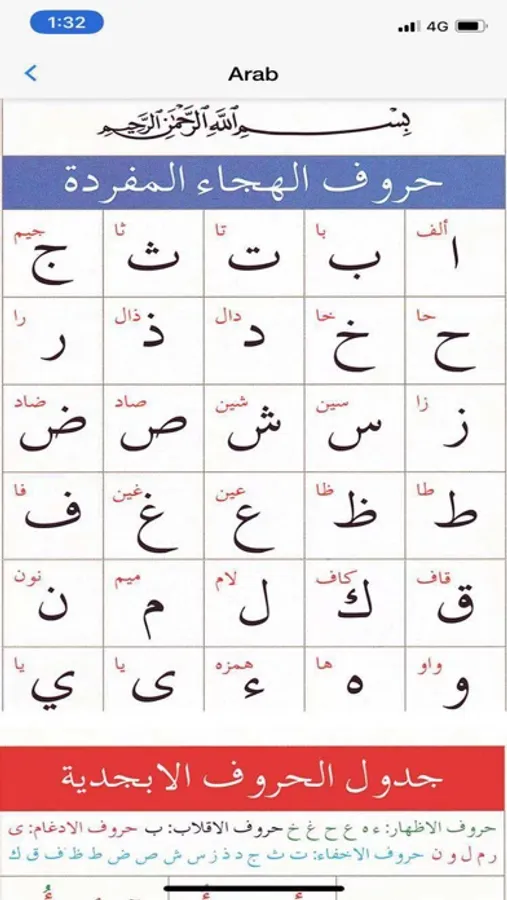 1:32
4G
Arab
بِسْــــمِ اللَّهِ الرَّحْمَٰنِ الرَّحِيمِ
حروف الهجاء المفردة
ألف با تا ثا جيم
ا ب ت ث ج
حا خا دال ذال را
ح خ د ذ ر
زا سين شين صاد ضاد
ز س ش ص ض
طا ظا عين غين فا
ط ظ ع غ ف
قاف كاف لام ميم نون
ق ك ل م ن
واو ها همزه يا يا
و ه ء ى ي
جدول الحروف الابجدية
حروف الاظهار: ء ه ع ح غ خ حروف الاقلاب: ب حروف الادغام: ى
ر م ل و ن حروف الاخفاء: ت ث ج د ذ ز س ش ص ض ط ظ ف ق ك